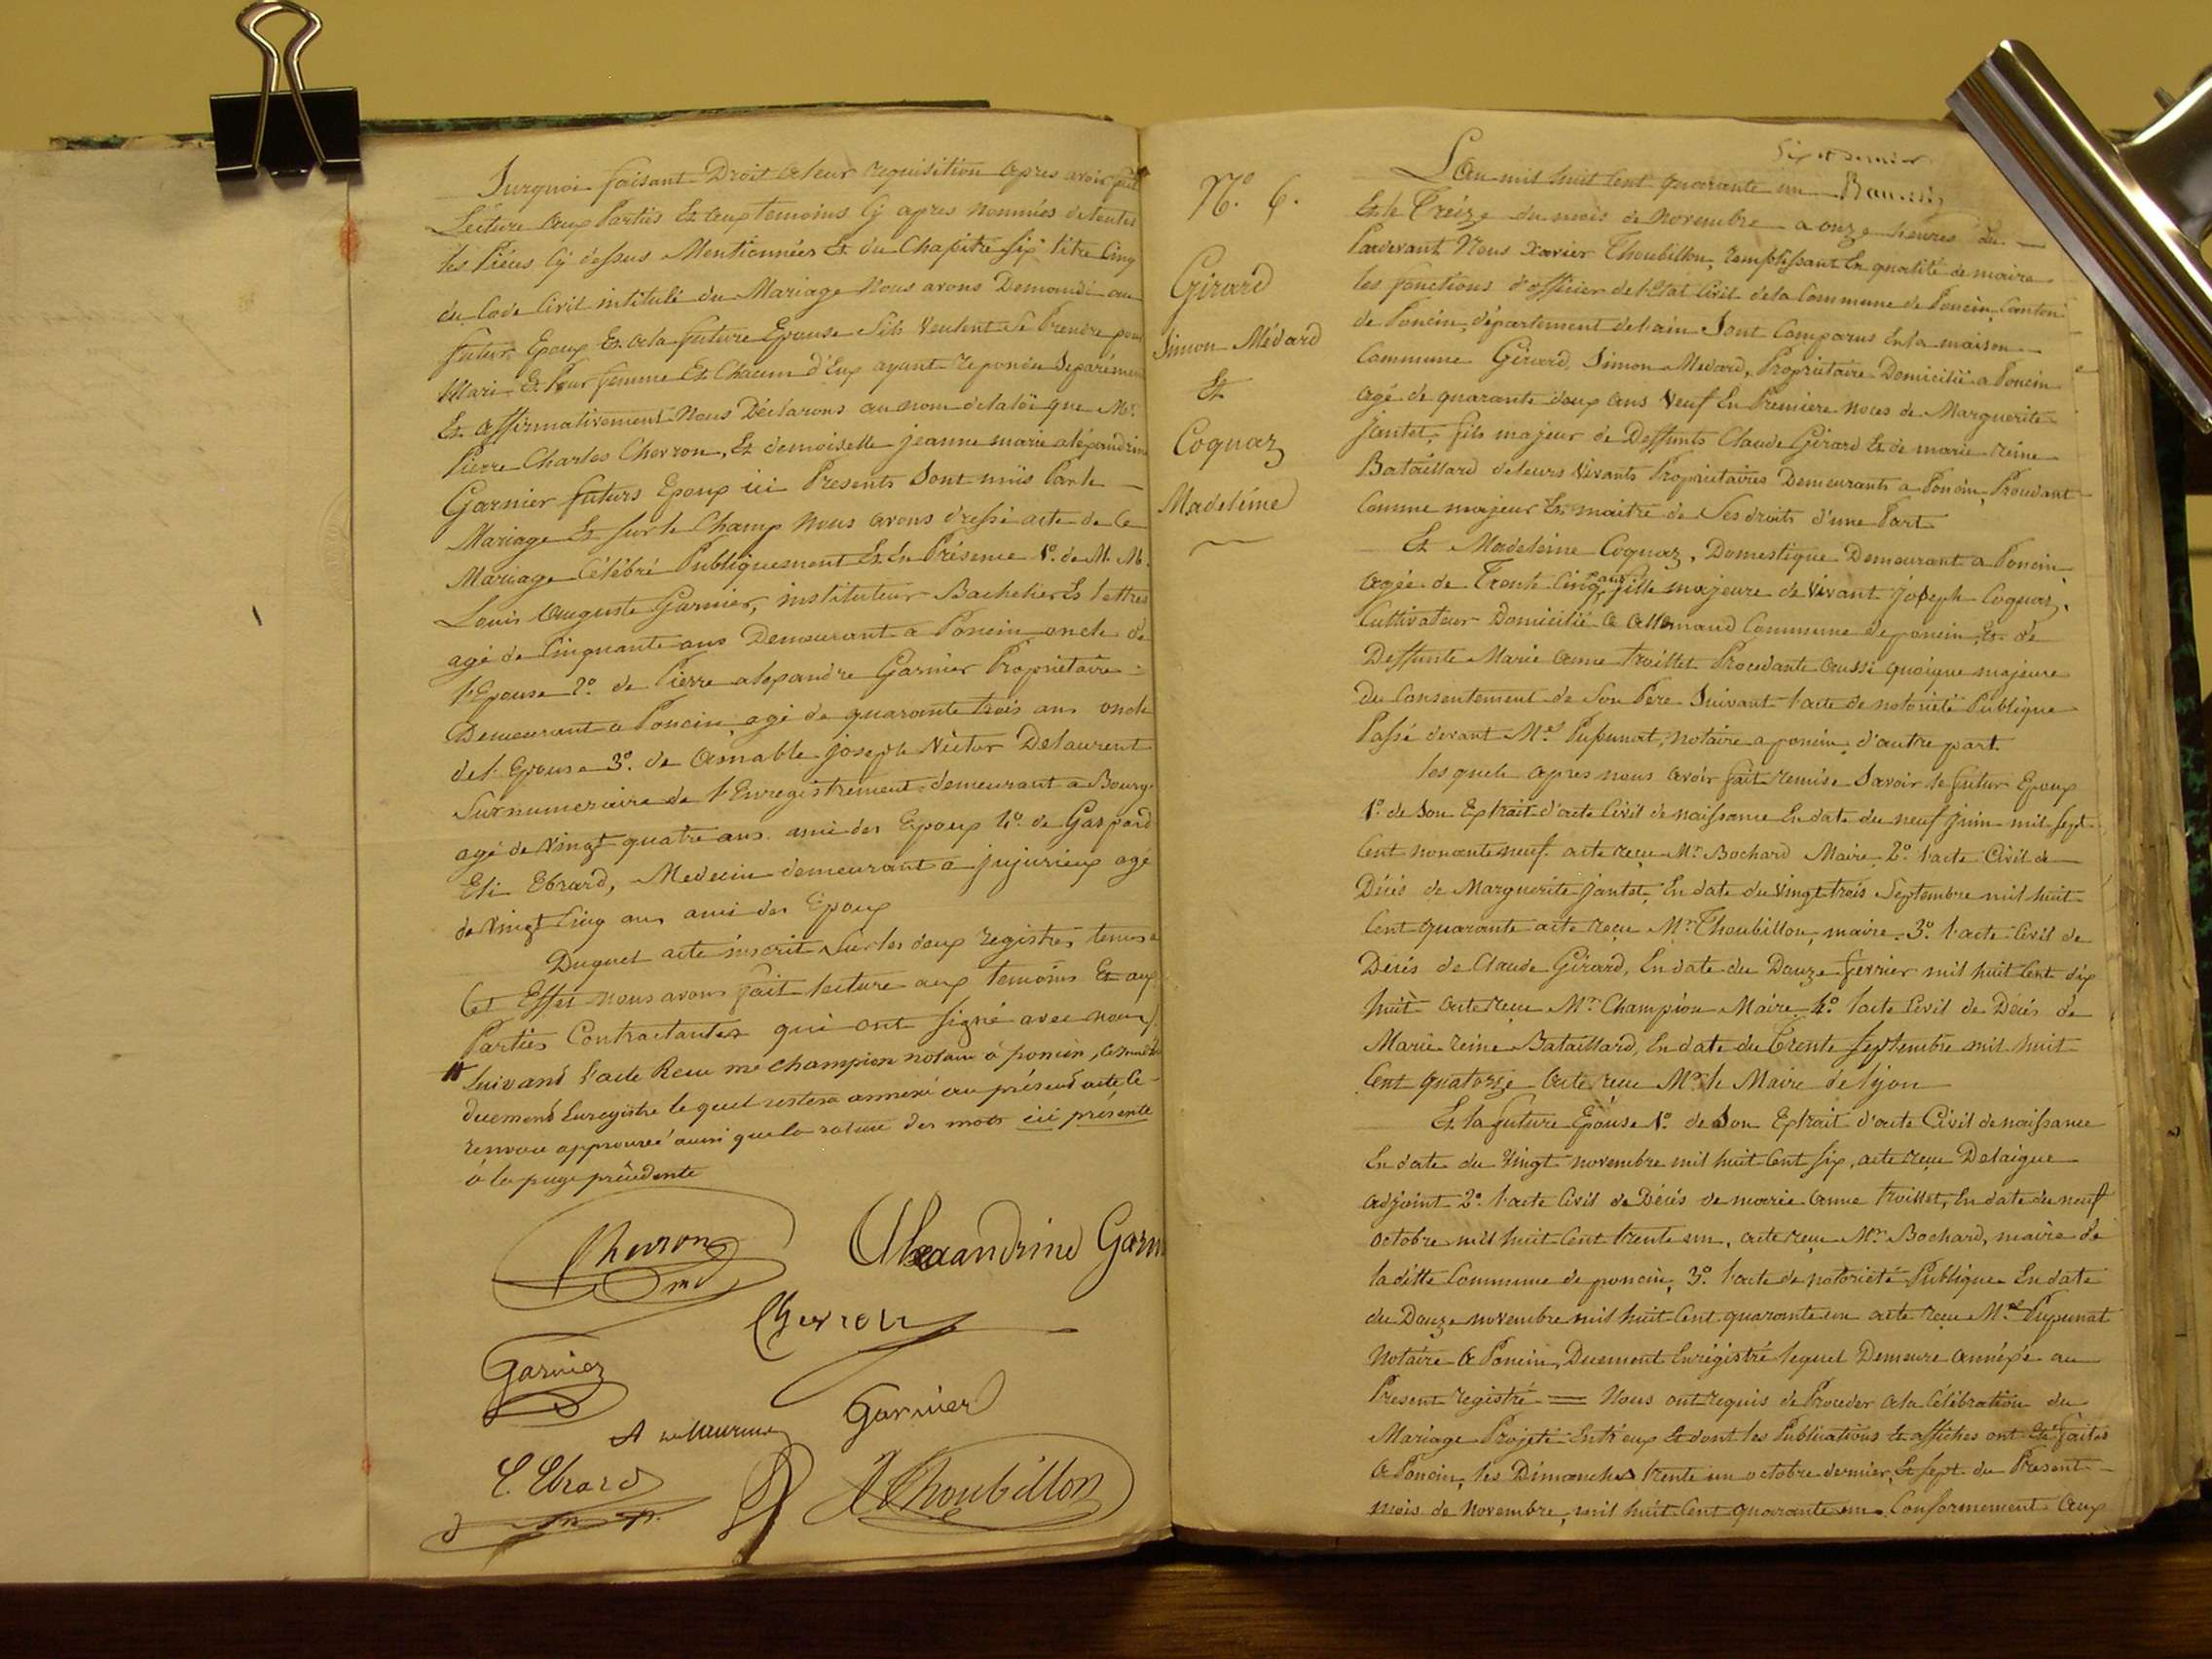 Surquoi faisant Droit aleur requisition apres avoir fait
Lecture aux Parties Et aux temoins Cy apres nommés detoutes
les Piéces Cy dessus Mentionnées Et du Chapitre Six titre Cinq
du Code Civil intitulé du Mariage Nous avons Demandé au
futur Epoux Et ala future Epouse Sils Veulent Se Prendre pour
Mari Et Pour femme Et Chacun d'Eux ayant repondu Separément
Et affirmativement Nous Déclarons au nom delaloi que Mr.
Pierre Charles Chevron, Et demoiselle jeanne marie alexandrine
Garnier futurs Epoux ici Presents Sont unis Par le
Mariage Et sur le Champ Nous avons dressé acte de Ce
Mariage Célébré Publiquement Et En Présence 1º. de M. M.
Louis Auguste Garnier, instituteur Bachelier Es lettres
agé de Cinquante ans Demeurant a Poncin oncle de
l'Epouse 2º. de Pierre alexandre Garnier Propriétaire
Demeurant a Poncin, agé de quarante trois ans oncle
del'Epouse 3º. de Aimable joseph Victor Delaurent
Surnumeraire de l'Enregistrement demeurant a Bourg.
agé de Vingt quatre ans ami des Epoux 4º. de Gaspard
Eli Ebrard, Medecin demeurant a jujurieux agé
de Vingt Cinq ans ami des Epoux
Duquel acte inscrit Sur les deux registres tenus a
Cet Effet nous avons fait lecture aux temoins Et aux
Parties Contractantes qui ont Signé avec nous
suivant l'acte Recu me Champion notaire à poncin,
duement Enregistré le quel restera annexé au présent acte le
renvoi approuvé ainsi que la rature des mots ici présente
à la page précédente
Chevron
Alexandrine Garn
Chevron
Garnier
Garnier
E. Ebrard
Thoubillon
Six et dernier
Nº. 6.
Girard
Simon Médard
Et
Coquaz
Madeléine
L'An mil huit Cent quarante un
Et le Treize du mois de Novembre a onze heures du
Pardevant Nous Xavier Thoubillon, remplissant En qualité de maire
les fonctions d'officier del'Etat Civil dela Commune de Poncin, Canton
de Poncin, département delain Sont Comparus En la maison
Commune Girard, Simon Medard, Propriétaire Domicilié a Poncin
agé de quarante deux ans Veuf En Premiere noces de Marguerite
Jantet, fils majeur de Deffunts Claude Girard Et de marie reine
Bataillard deleurs Vivants Propriétaires Demeurants a Poncin, Procedant
Comme majeur Et maitre de Ses droits d'une Part
Et Madeleine Coquaz, Domestique Demeurant a Poncin,
agée de Trente Cinq ans, fille majeure de Vivant joseph Coquaz,
Cultivateur Domicilié a Allemand Commune deponcin, Et de
Deffunte Marie anne troillet Procedante aussi quoique majeure
Du Consentement de Son Pere Suivant l'acte de notoriété Publique
Passé devant Me Pupunat, notaire a poncin, d'autre part.
les quels apres nous avoir fait remise Savoir le futur Epoux
1º. de Son Extrait d'acte Civil de naissance En date du neuf juin mil sept
Cent nonante neuf. acte reçu Mr. Bochard Maire 2º. l'acte Civil de
Décés de Marguerite jantet, En date du Vingt trois Septembre mil huit
Cent quarante acte reçu Mr. Thoubillon, maire. 3º. l'acte Civil de
Décés de Claude Girard, En date du Douze fevrier mil huit Cent dix
huit acte reçu Mr. Champion Maire 4º. l'acte Civil de Décés de
Marie reine Bataillard, En date du Trente Septembre mil huit
Cent quatorze acte reçu Mr. le Maire de lyon
Et la future Epouse 1º. de Son Extrait d'acte Civil denaissance
En date du Vingt novembre mil huit Cent Six, acte reçu Delaigue
adjoint 2º. l'acte Civil de Décés de marie anne troillet, En date du neuf
octobre mil huit Cent trente un, acte reçu Mr. Bochard, maire de
ladite Commune de poncin, 3º. l'acte de notoriété Publique En date
du Douze novembre mil huit Cent quarante un acte reçu Me Pupunat
Notaire A Poncin, Duement Enrégistré lequel Demeure annéxé au
Present registré = Nous ont requis de Proceder ala Célébration du
Mariage Projeté Entr'eux Et dont les Publications Et affiches ont été faites
A Poncin, les Dimanches trente un octobre dernier, Et Sept du Present
mois de Novembre, mil huit Cent quarante un. Conformement aux